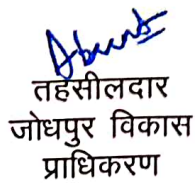 तहसीलदार
जोधपुर विकास
प्राधिकरण